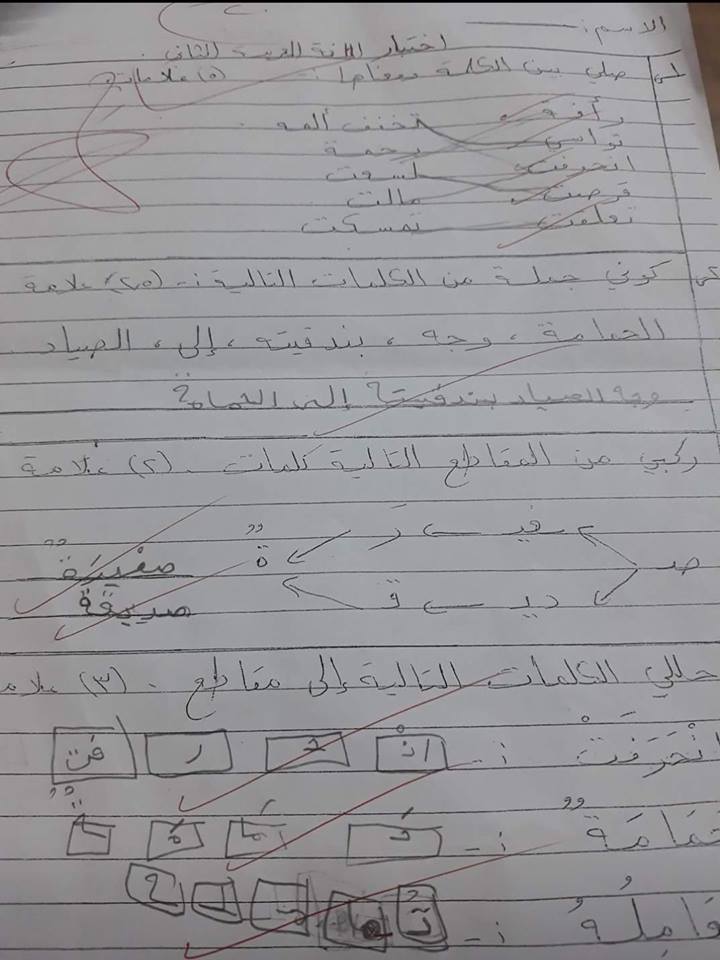 الاسم :
اختبار اللغة العربية الثاني .
صلي بين الكلمة ومعناها : (٥) علامات
رأفة تخفف ألمه
تواسي رحمة
انحرفت لسعت
قرصت مالت
تعلقت تمسكت
كوني جملة من الكلمات التالية :- (٢٥) علامة
الحمامة ، وجه ، بندقيته ، إلى ، الصياد
وجه الصياد بندقيتة إلى الحمامة
ركبي من المقاطع التالية كلمات . (٢) علامة
غيـ رَ
صـ ةٌ صغيرَةٌ
ديـ قـ صديقة
حللي الكلمات التالية إلى مقاطع . (٣) علامـ
انْحَرَفَتْ :- انْ حَـ ر فت
حَمَامَةٌ :- حَـ مَا مَـ ةٌ
:-